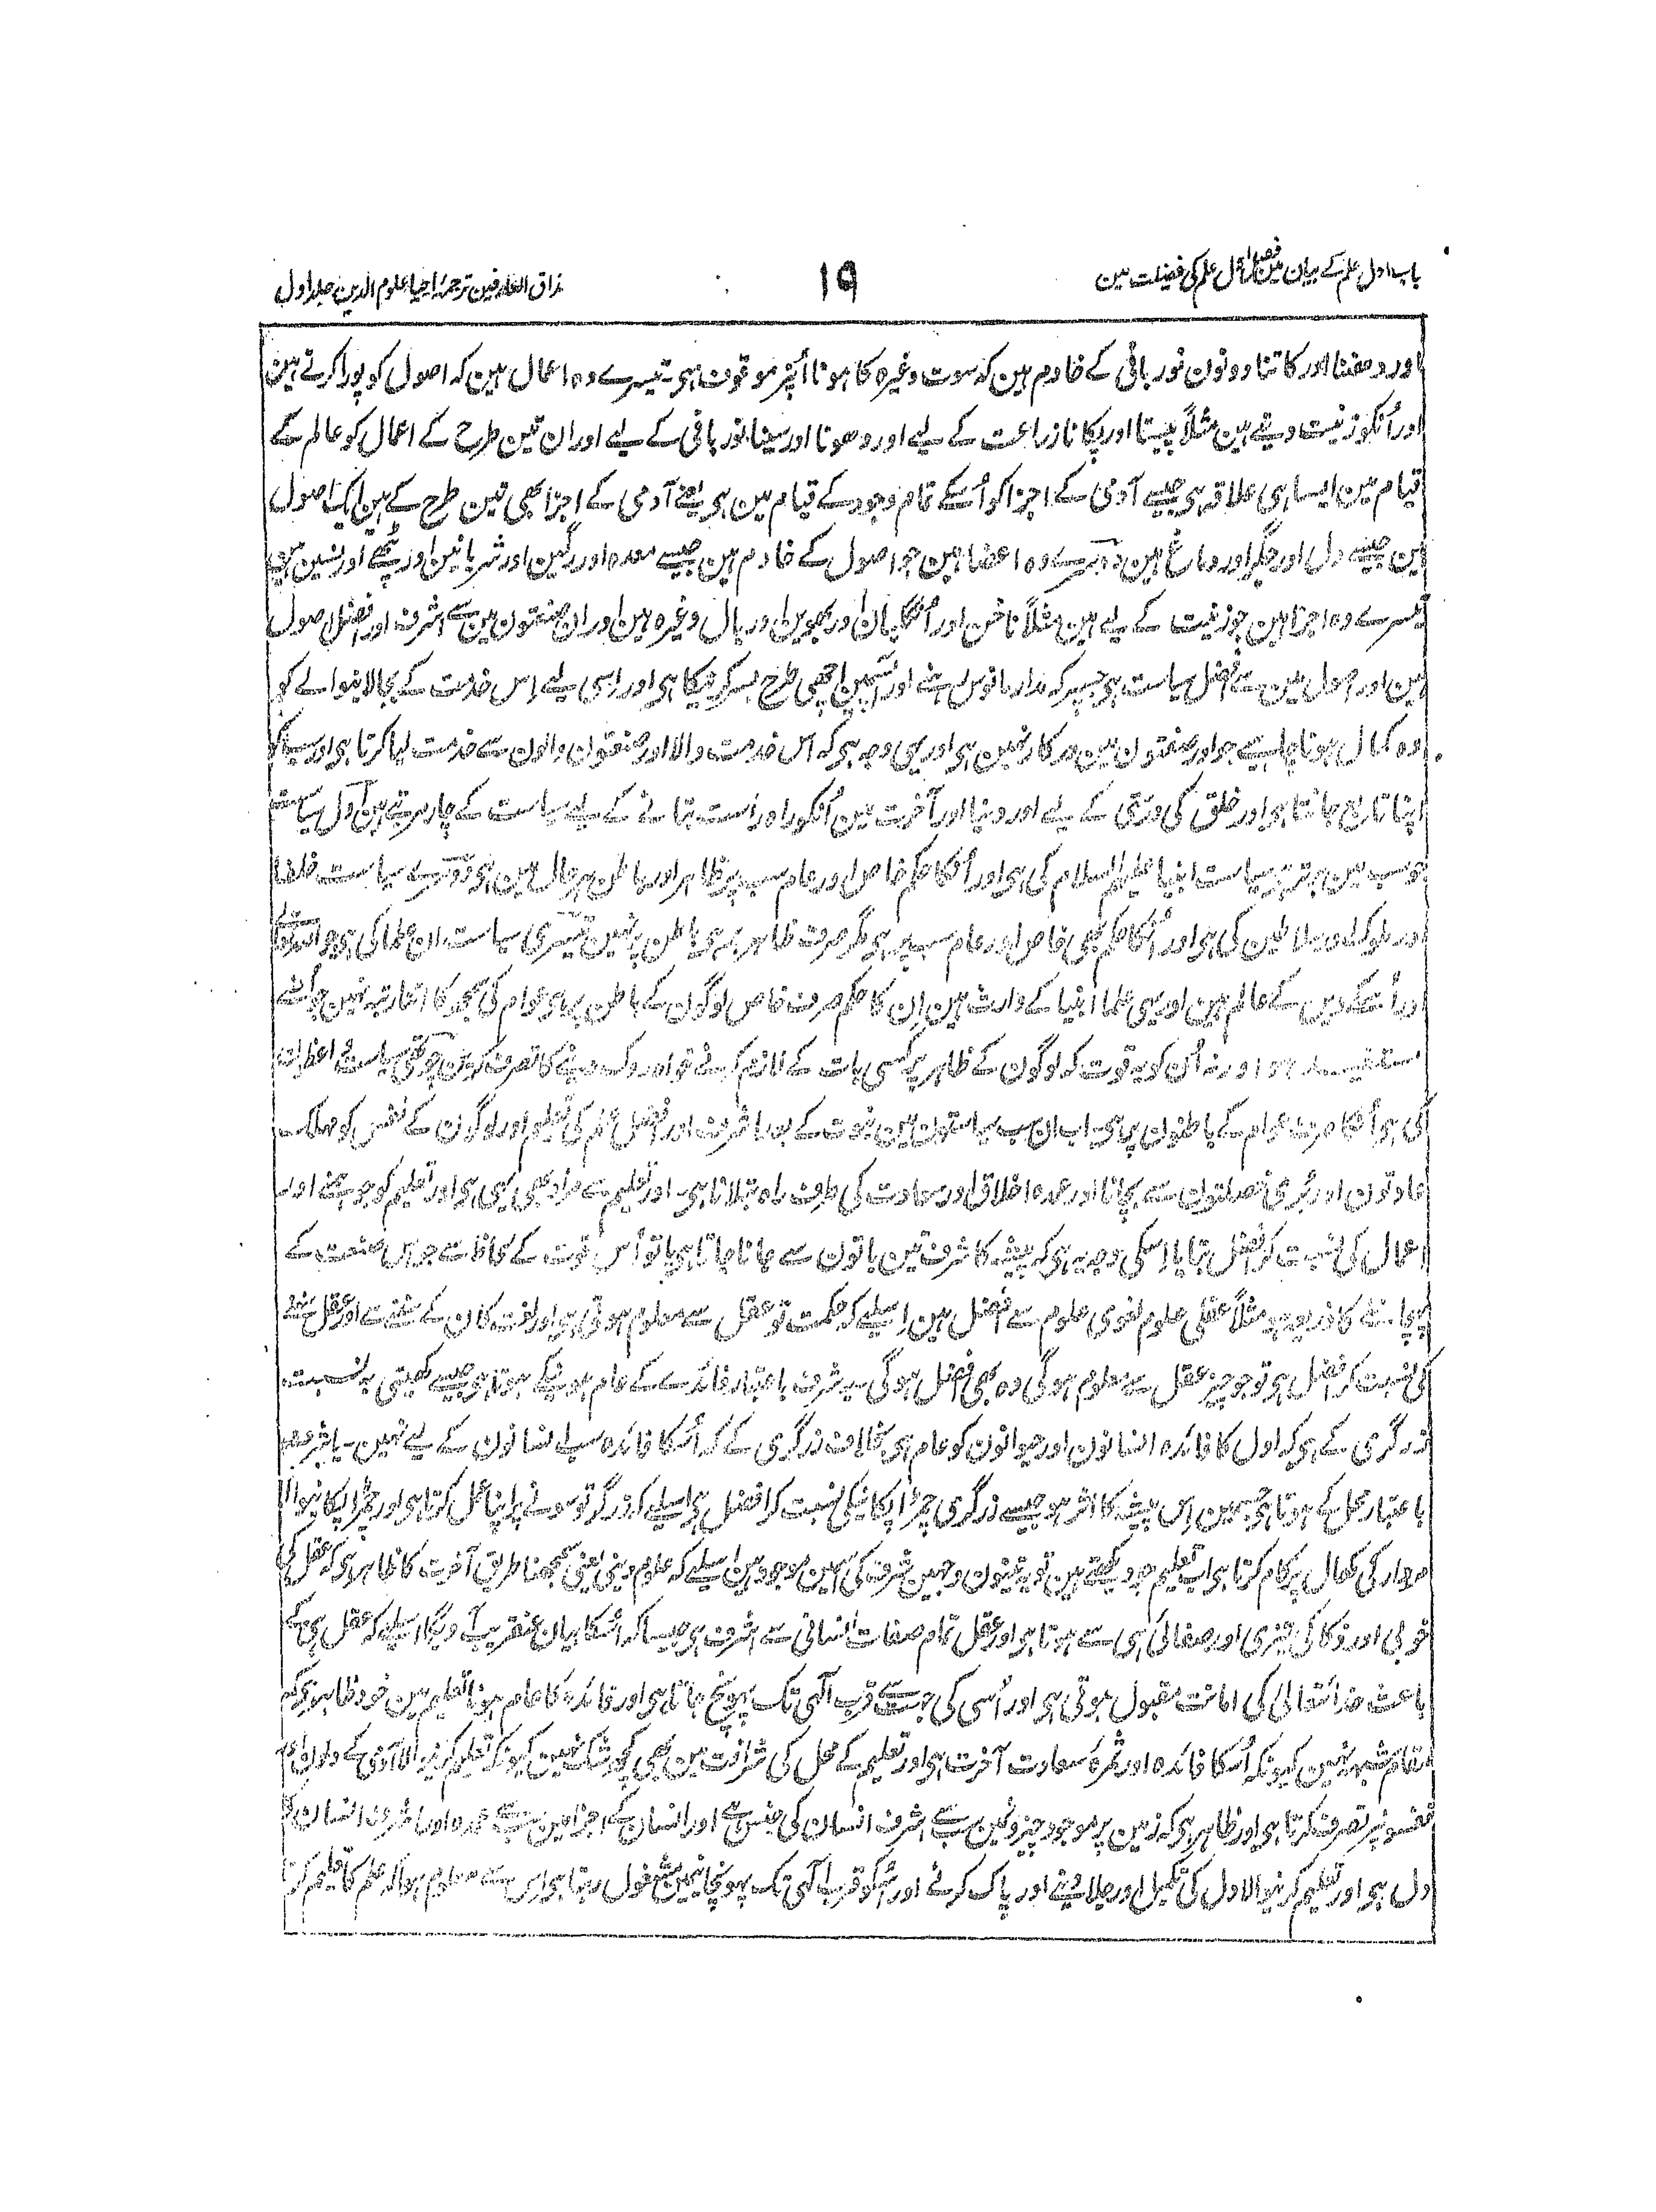 باب اول علم کے بیان مین فصل اول علم کی فضیلت مین
١٩
مذاق العارفین ترجمۂ احیاء علوم الدین جلد اول
اور دھننا اور کاتنا دونون نور بافی کے خادم ہین کہ سوت وغیرہ کا ہونا اُنپر موقوف ہی۔ تیسرے وہ اعمال ہین کہ اصول کو پورا کرتے ہین
اور اُنکو زینت دیتے ہین مثلاً پیسنا اور پکانا زراعت کے لیے اور دھونا اور سینا نور بافی کے لیے اور ان تین طرح کے اعمال کو عالم کے
قیام مین ایسا ہی علاقہ ہی جیسے آدمی کے اجزا کو اُسکے تمام وجود کے قیام مین ہی یعنے آدمی کے اجزا بھی تین طرح کے ہین ایک اصول
ہین جیسے دل اور جگر اور دماغ ہین دوسرے وہ اعضا ہین جو اصول کے خادم ہین جیسے معدہ اور رگین اور شریانین اور پٹھے اور نسین ہین
تیسرے وہ اجزا ہین جو زینت کے لیے ہین مثلاً ناخن اور اُنگلیان اور بھوین اور بال وغیرہ ہین اور ان صنعتون مین سے اشرف اور افضل اصول
ہین اور اصول مین سے افضل سیاست ہی جسپر کہ مدار مانوس ہنے اور آپسمین اچھی طرح بسر کرنیکا ہی اور اسی لیے اِس خدمت کے بجالانیوالے کو
وہ کمال ہونا چاہیے جو اور صنعتون مین درکار نہین ہی اور یہی وجہ ہی کہ اس خدمت والا اور صنعتون والون سے خدمت لیا کرتا ہی اور سبکو
اپنا تابع جانتا ہی اور خلق کی درستی کے لیے اور دنیا اور آخرت مین اُنکو راہ راست بتانے کے لیے سیاست کے چار مرتبے ہین اول سیاست
جو سب مین برتر ہی سیاست انبیا علیہم السلام کی ہی اور اُنکا حکم خاص اور عام سب پر ظاہر اور باطن ہر حال مین ہی دوسرے سیاست خلفا
اور ملوک اور سلاطین کی ہی اور اُنکا حکم بھی خاص اور عام سب پر ہی مگر صرف ظاہر پر ہی باطن پر نہین تیسری سیاست ان علما کی ہی جو
اور اُسکے دین کے عالم ہین اور یہی علما انبیا کے وارث ہین اِن کا حکم صرف خاص لوگون کے باطن پر ہی عوام کی سمجھ کا اتنا رتبہ نہین جو اُنسے
مستفید ہو اور نہ اُن کو یہ قوت کہ لوگون کے ظاہر پر کسی بات کے لازم کرنے خواہ روک دینے کا تصرف کرین چوتھی سیاست واعظون
کی ہی اُنکا صرف عوام کے باطنون پر ہی۔ اب ان سب سیاستون مین نبوت کے بعد اشرف اور افضل علم کی تعلیم اور لوگون کے نفس کو مہلک
عادتون اور بُری خصلتون سے بچانا اور عمدہ اخلاق اور سعادت کی طرف راہ بتلانا ہی۔ اور تعلیم سے مراد بھی یہی ہی اور تعلیم کو جو ہمنے اور
اعمال کی نسبت کر افضل بتایا اسکی وجہ یہ ہی کہ پیشہ کا شرف تین باتون سے جانا جاتا ہی یا تو اُس قوت کے لحاظ سے جو اس صنعت کے
پہچاننے کا ذریعہ ہو مثلاً عقلی علوم لغوی علوم سے افضل ہین اسلیے کہ حکمت تو عقل سے معلوم ہوتی ہی اور لغت کان کے سننے سے اور عقل سننے
کی نسبت کر افضل ہی تو جو چیز عقل سے معلوم ہوگی وہ بھی افضل ہوگی یا شرف باعتبار فائدے کے عام ہونیکے ہوتا ہی جیسے کھیتی بہ نسبت
زرگری کے ہی کہ اول کا فائدہ انسانون اور حیوانون کو عام ہی بخلاف زرگری کے کہ اُسکا فائدہ سب انسانون کے لیے نہین۔ یا شرف
باعتبار محل کے ہوتا ہی جسمین اِس پیشہ کا اثر ہو جیسے زرگری چمڑا پکانیکی نسبت کر افضل ہی اسلیے کہ زرگر تو سونے پر اپنا عمل کرتا ہی اور چمڑا پکانیوالا
مردار کی کھال پر کام کرتا ہی اب تعلیم جو دیکھتے ہین تو یہ تینون وجہین شرف کی اسمین موجود ہین اسلیے کہ علوم دینی یعنی سمجھنا طریق آخرت کا ظاہر ہی کہ عقل کی
خوبی اور ذکا کی تیزی اور صفائی ہی سے ہوتا ہی اور عقل تمام صفات انسانی سے اشرف ہی جیسا کہ اُسکا بیان عنقریب آویگا اسلیے کہ عقل ہی کے
باعث خدا تعالیٰ کی امانت مقبول ہوتی ہی اور اُسی کی جہت سے قرب الٰہی تک پہونچ جاتا ہی اور فائدہ کا عام ہونا تعلیم مین خود ظاہر ہی کہ
مقام شبہہ نہین کیونکہ اُسکا فائدہ اور ثمرہ سعادت آخرت ہی اور تعلیم کے محل کی شرافت مین بھی کچھ شک نہین کیونکہ تعلیم کرنیوالا آدمی کے دلون اور
نفسونپر تصرف کرتا ہی اور ظاہر ہی کہ زمین پر موجود چیزونمین سب سے اشرف انسان کی جنس ہی اور انسان کے اجزا مین سب سے عمدہ اور اشرف انسان کا
دل ہی اور تعلیم کرنیوالا دل کی تکمیل اور جلا دینے اور پاک کرنے اور اُسکو قرب الٰہی تک پہونچانیمین مشغول رہتا ہی اس سے معلوم ہوا کہ علم کا تعلیم کرنا